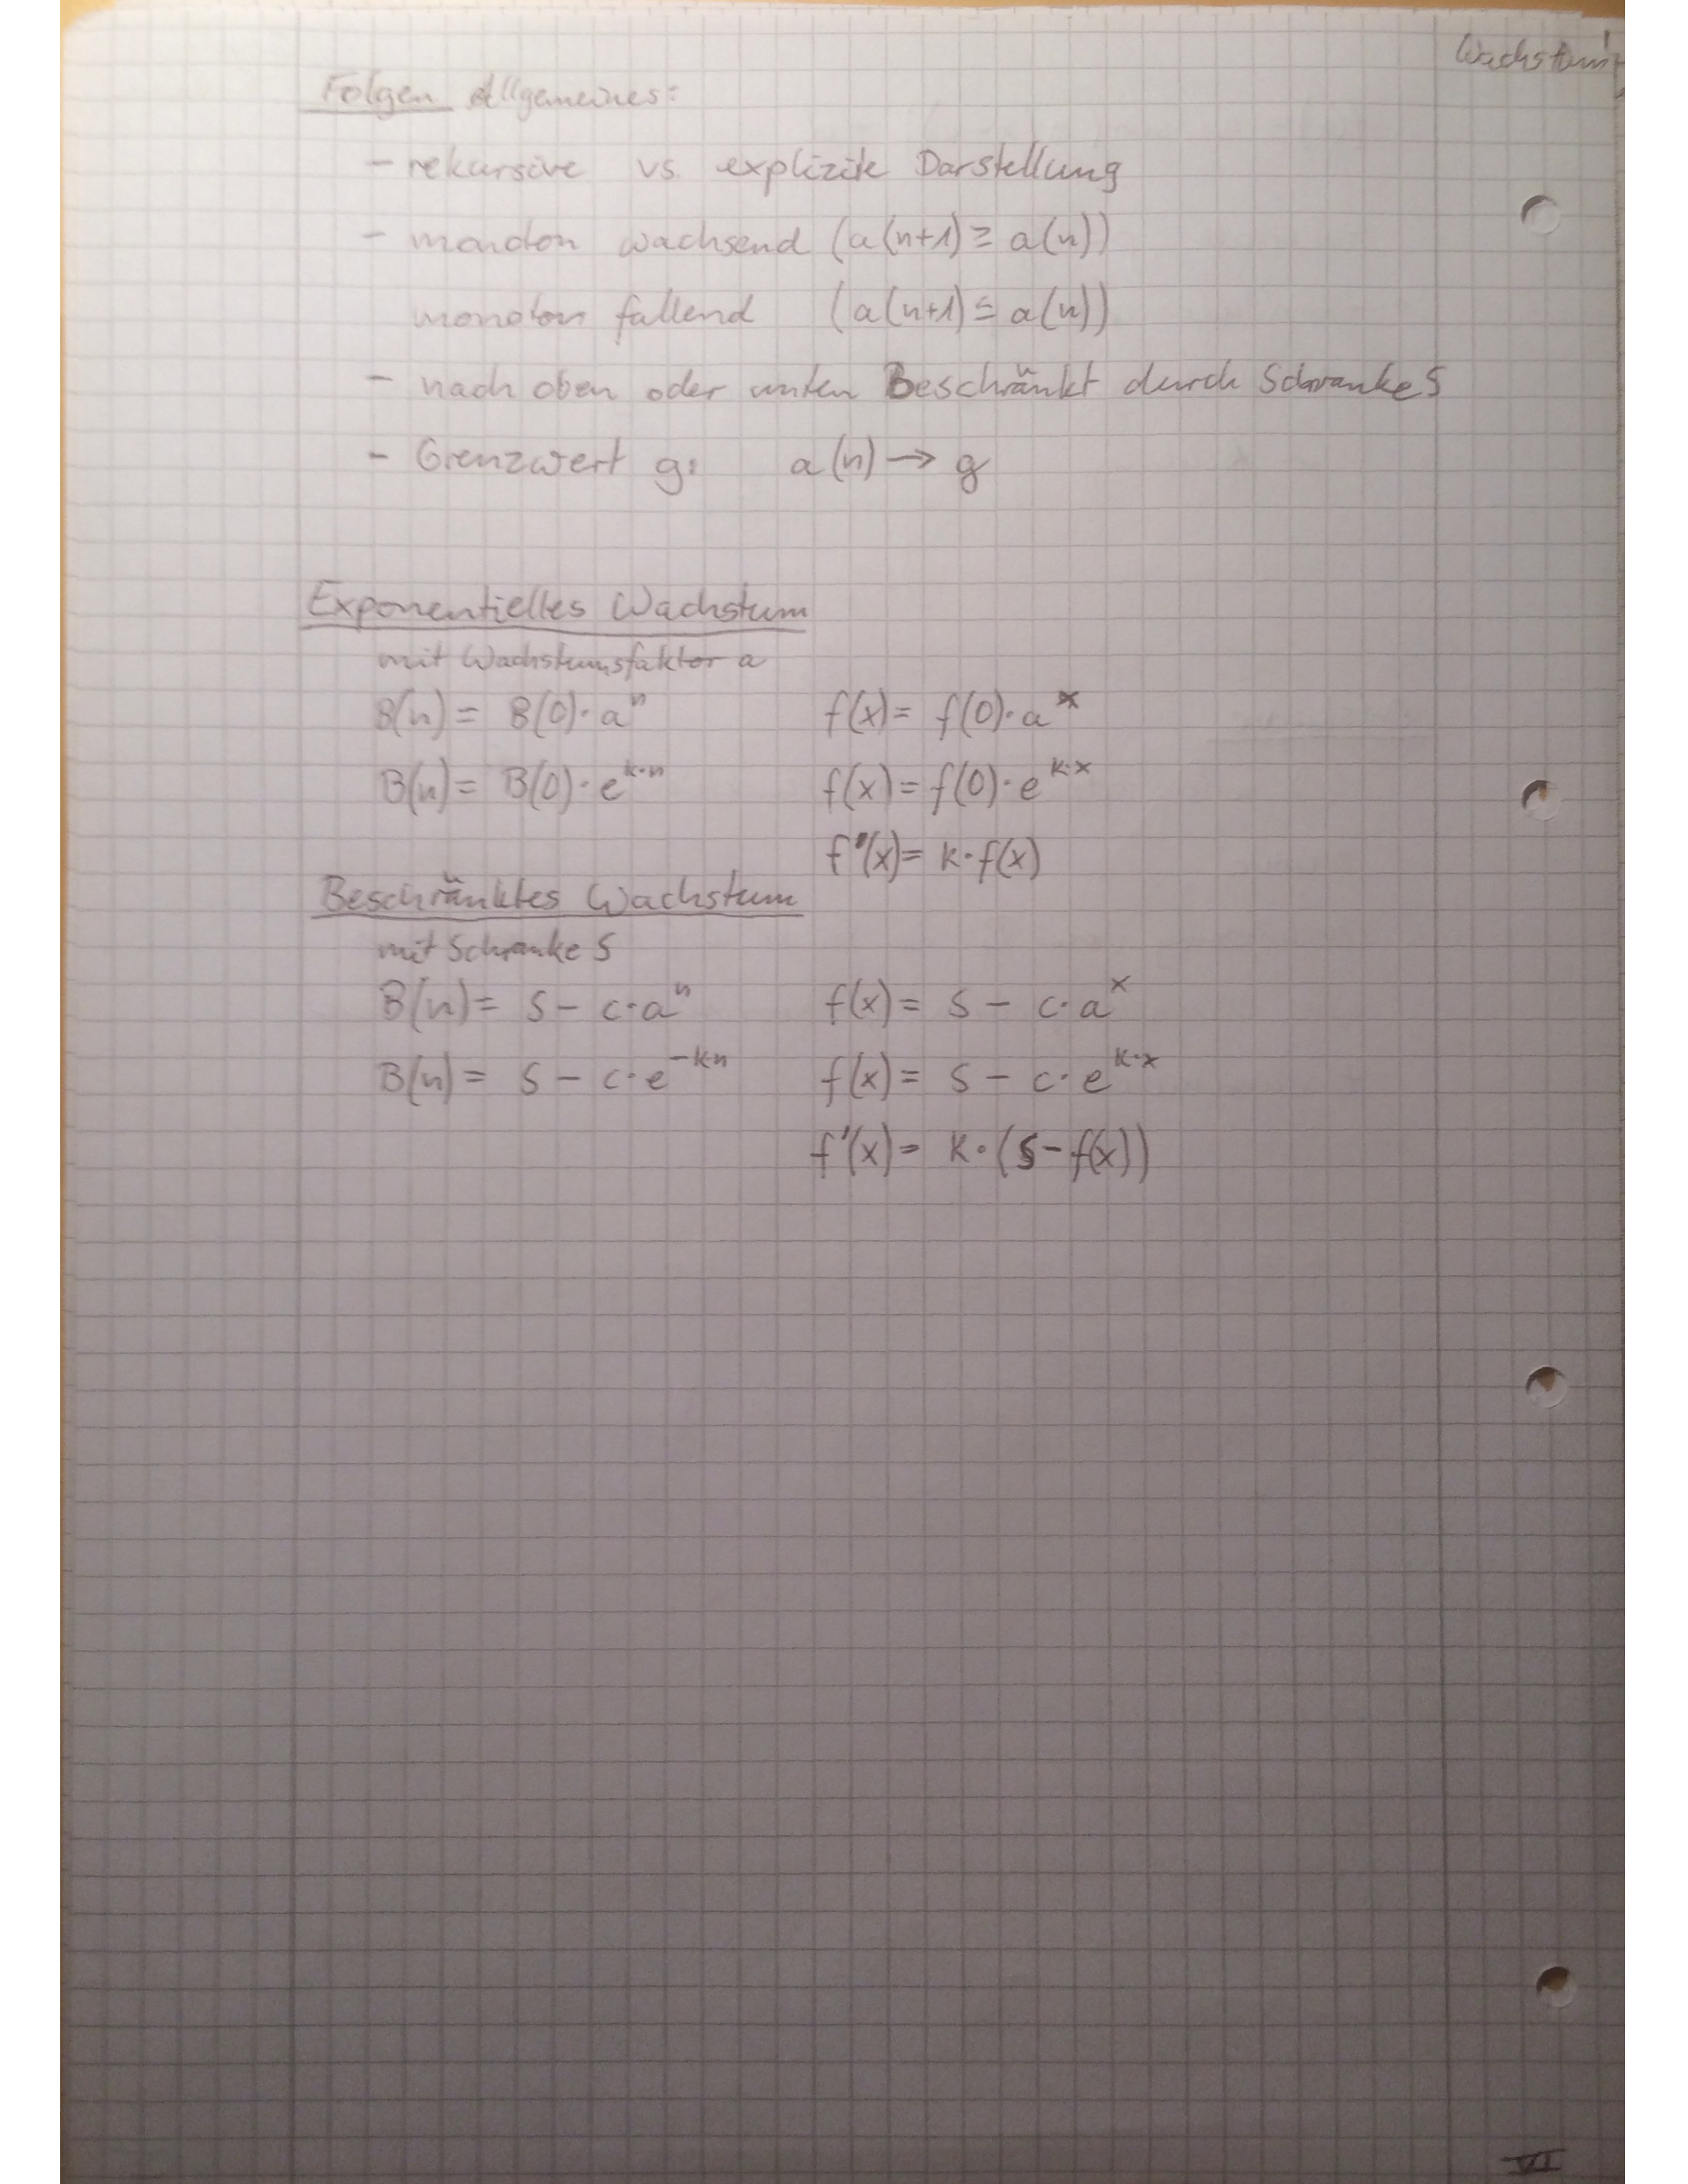 Wachstum
Folgen Allgemeines:
- rekursive vs. explizite Darstellung
- monoton wachsend (a(n+1) ≥ a(n))
monoton fallend (a(n+1) ≤ a(n))
- nach oben oder unten Beschränkt durch Schranke S
- Grenzwert g: a(n) → g
Exponentielles Wachstum
mit Wachstumsfaktor a
B(n) = B(0)·aⁿ f(x) = f(0)·aˣ
B(n) = B(0)·e^(k·n) f(x) = f(0)·e^(k·x)
f'(x) = k·f(x)
Beschränktes Wachstum
mit Schranke S
B(n) = S - c·aⁿ f(x) = S - c·aˣ
B(n) = S - c·e^(-k·n) f(x) = S - c·e^(k·x)
f'(x) = k·(S-f(x))
VI